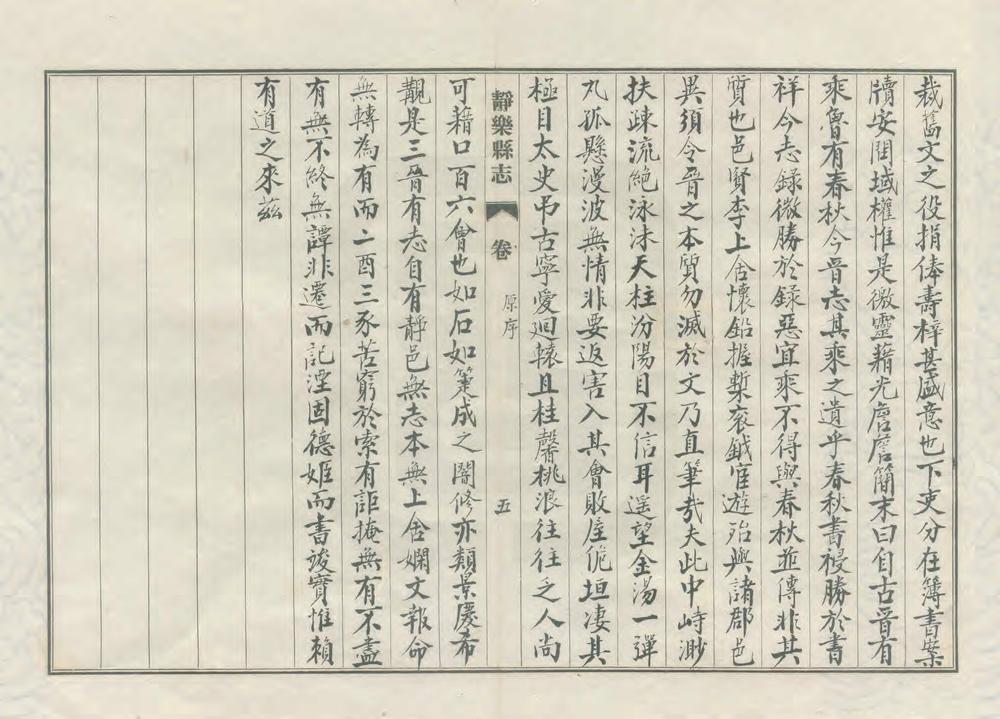 裁舊文之役捐俸壽梓甚盛意也下吏分在簿書案
牘安閈域權惟是微靈藉光詹詹簡末曰自古晉有
乘魯有春秋今晉志其乘之遺乎春秋書祲勝於書
祥今志錄微勝於錄惡宜乘不得與春秋並傳非其
質也邑賢李上舍懷鉛握槧袞鉞宦遊殆與諸郡邑
異須令晉之本質勿滅於文乃直筆哉夫此中峙渺
扶疎流絶泳沫天柱汾陽目不信耳遥望金湯一彈
丸孤懸漫波無情非要返害入其會敗垣凄其
極目太史弔古寧愛迴轅且桂馨桃浪往往乏人尚
靜樂縣志 卷 原序 五
可藉口百六會也如石如筆成之闇修亦類景慶希
覯是三晉有志自有靜邑無志本無上舍嫻文報命
無轉為有而二酉三豕苦窮於索有詎掩無有不盡
有無不終無譚非遷而記湮固德姬而書誠實惟賴
有道之來茲